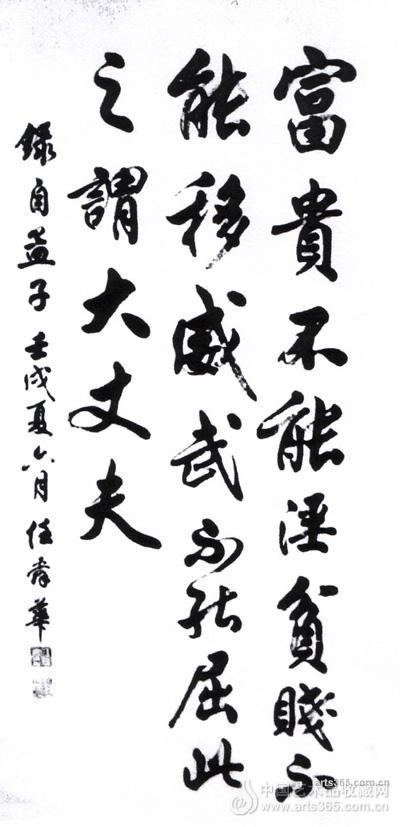 富貴不能淫貧賤不
能移威武不能屈此
之謂大丈夫
錄自孟子壬戌夏六月任孝華
arts365.com.cn
中国艺术品收藏网
www.arts365.com.cn